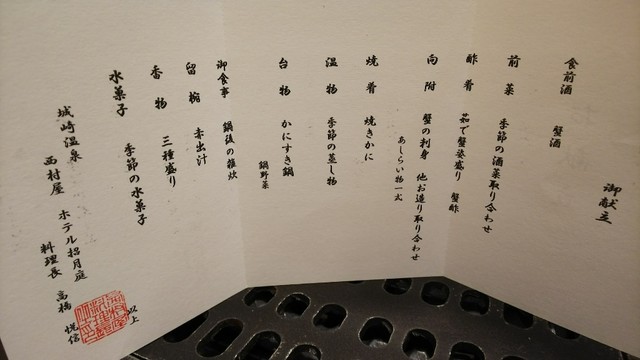 御献立
食前酒 蟹酒
前菜 季節の酒菜取り合わせ
酢肴 茹で蟹姿盛り 蟹酢
向附 蟹の刺身 他お造り取り合わせ
あしらい物一式
焼肴 焼きかに
温物 季節の蒸し物
台物 かにすき鍋
鍋野菜
御食事 鍋後の雑炊
留椀 赤出汁
香物 三種盛り
水菓子 季節の水菓子
城崎温泉
西村屋 ホテル招月庭
料理長 高橋 悦信
以上